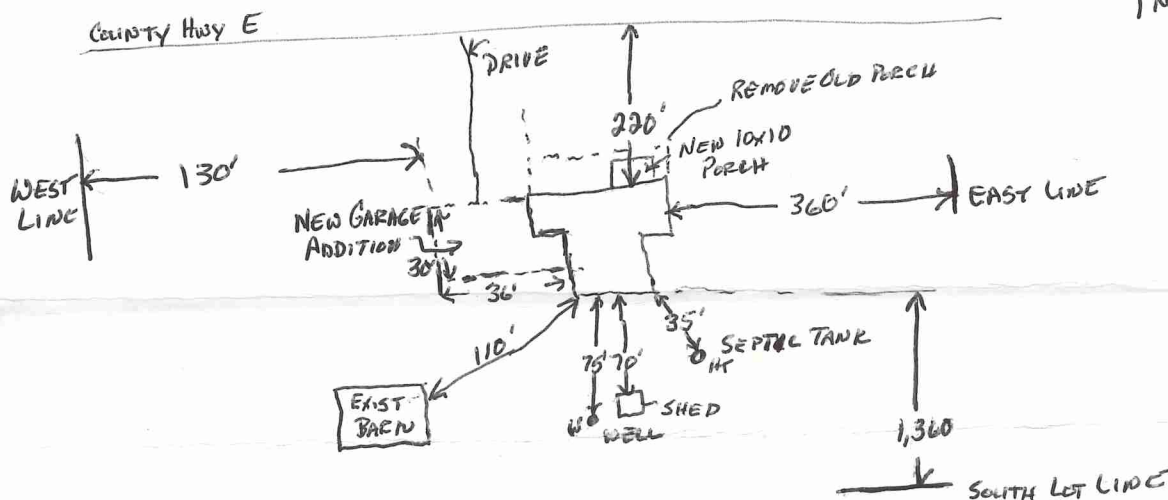 COUNTY HWY E
DRIVE
REMOVE OLD PORCH
220'
NEW 10X10
PORCH
130'
WEST
LINE
360'
EAST LINE
NEW GARAGE
ADDITION
30'
36'
110'
75'
70'
35'
SEPTIC TANK
EXIST
BARN
SHED
W
WELL
1,360
SOUTH LOT LINE